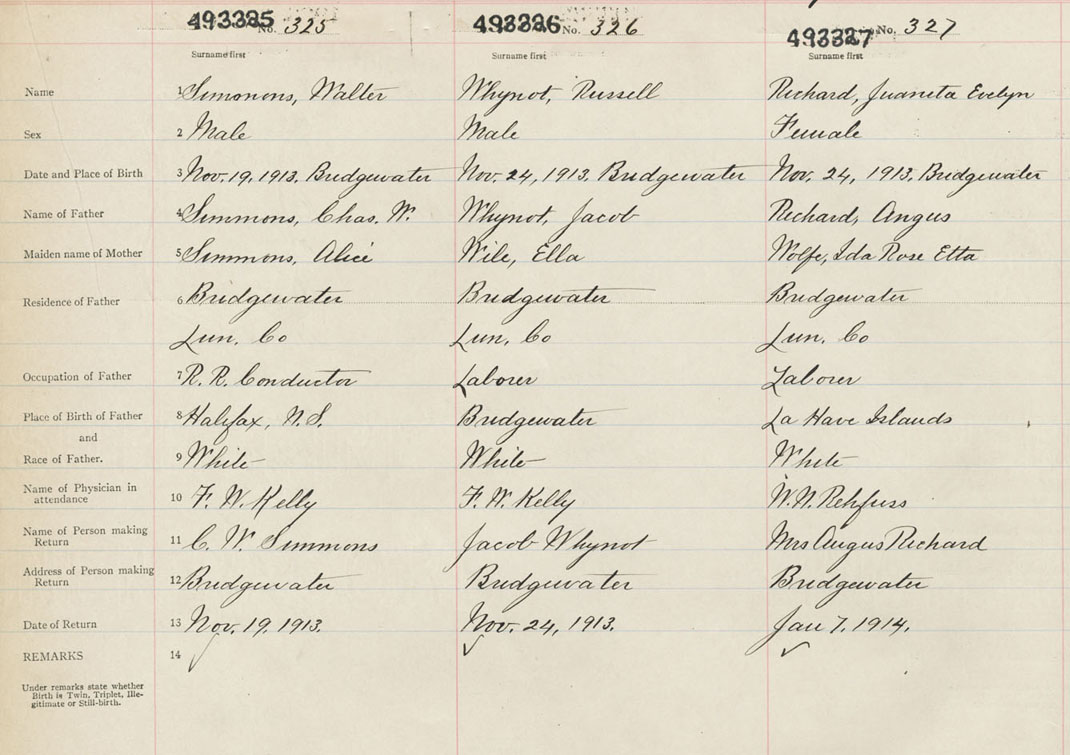 493325 No. 325 493326 No. 326 493327 No. 327
Surname first Surname first Surname first
Name 1 Simonons, Walter Whynot, Russell Richard, Juanita Evelyn
Sex 2 Male Male Female
Date and Place of Birth 3 Nov. 19, 1913. Bridgewater Nov. 24, 1913. Bridgewater Nov. 24, 1913. Bridgewater
Name of Father 4 Simmons, Chas. W. Whynot, Jacob Richard, Angus
Maiden name of Mother 5 Simmons, Alice Wile, Ella Wolfe, Ida Rose Etta
Residence of Father 6 Bridgewater Bridgewater Bridgewater
Lun. Co Lun. Co Lun. Co
Occupation of Father 7 R. R. Conductor Laborer Laborer
Place of Birth of Father 8 Halifax, N.S. Bridgewater La Have Islands
and
Race of Father. 9 White White White
Name of Physician in
attendance 10 F. W. Kelly F. W. Kelly W. N. Rehfuss
Name of Person making
Return 11 C. W. Simmons Jacob Whynot Mrs Angus Richard
Address of Person making
Return 12 Bridgewater Bridgewater Bridgewater
Date of Return 13 Nov. 19, 1913. Nov. 24, 1913. Jan 7, 1914.
REMARKS 14
Under remarks state whether
Birth is Twin, Triplet, Ille-
gitimate or Still-birth.